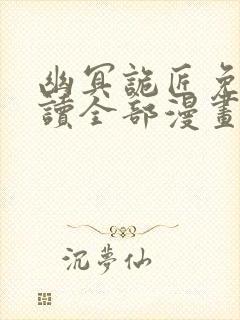 幽冥詭匠免
讀全部漫畫
沉夢仙